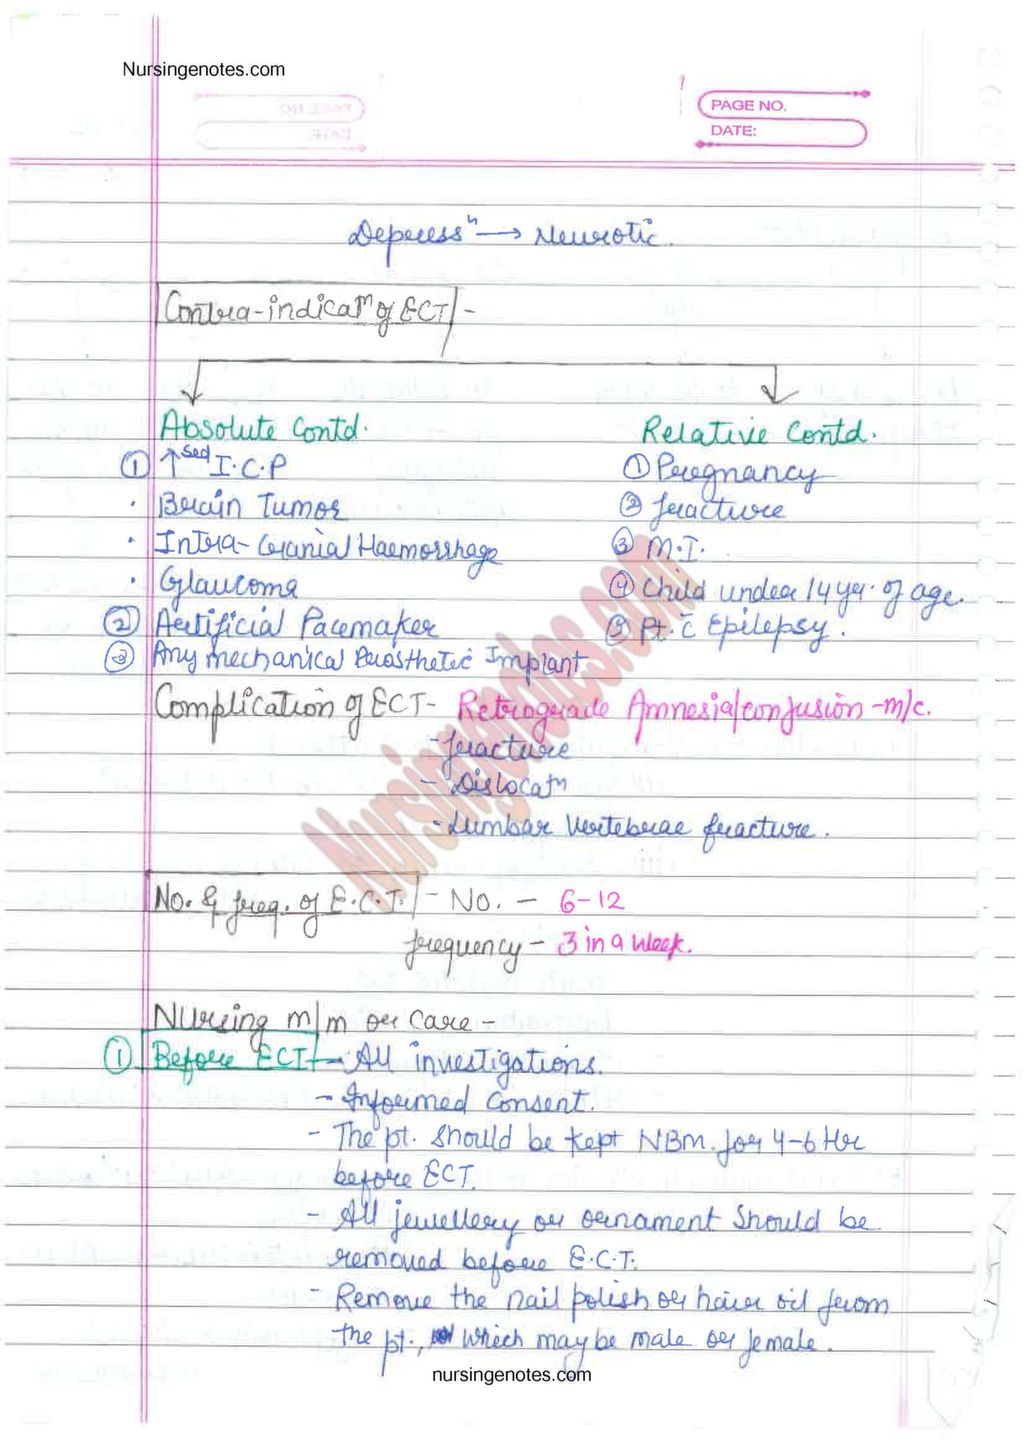 Nursingenotes.com
PAGE NO.
DATE:
Depressⁿ → Neurotic.
Contra-indicatⁿ of ECT -
Absolute Contd.
Relative Contd.
① ↑sed I.C.P
① Pregnancy
· Brain Tumor
② fracture
· Intra-Cranial Haemorrhage
③ M.I.
· Glaucoma
④ Child under 14 yr. of age.
② Artificial Pacemaker
⑤ Pt. c̄ Epilepsy.
③ Any mechanical Prosthetic Implant
Complication of ECT- Retrograde Amnesia/confusion -m/c.
- fracture
- Dislocatⁿ
- Lumbar Vertebrae fracture.
No. & freq. of E.C.T. - No. - 6-12
frequency - 3 in a week.
Nursing m/m or care -
① Before ECT - All investigations.
- Informed Consent.
- The pt. should be kept NBM. for 4-6 Hr
before ECT.
- All jewellery or ornament should be
removed before E.C.T.
- Remove the nail polish or hair oil from
the pt., which may be male or female.
nursingenotes.com
Nursingenotes.com